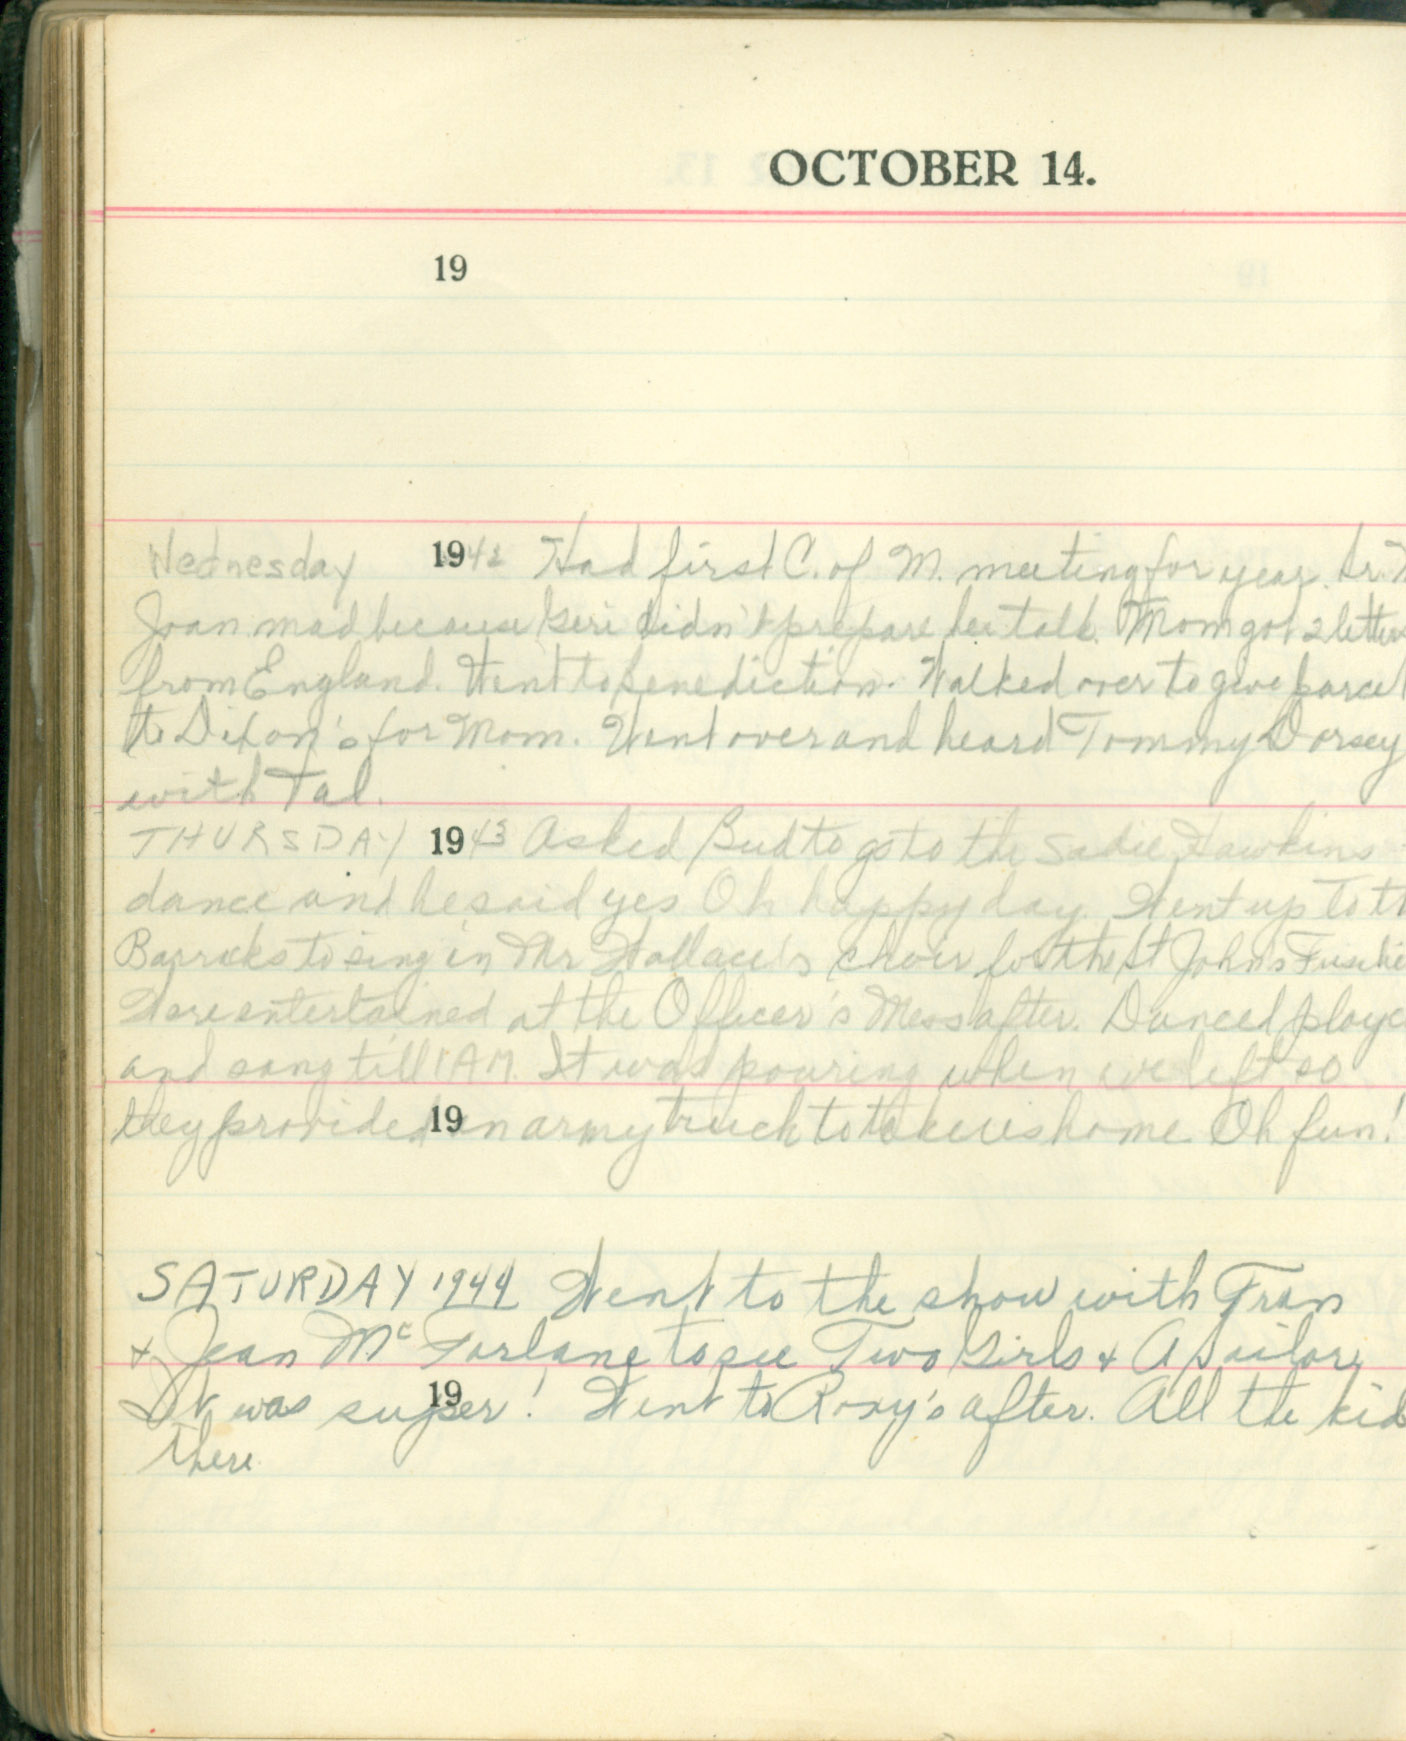 OCTOBER 14.
19
Wednesday 1942 Had first C. of M. meeting for year. Sr.
Joan mad because Geri didn't prepare her talk. Mom got 2 letters
from England. Went to Benediction. Walked over to give parcel
to Dixon's for Mom. Went over and heard Tommy Dorsey
with Tal.
THURSDAY 1943 Asked Bud to go to the Sadie Hawkins
dance and he said yes Oh happy day. Went up to th
Barracks to sing in Mr Wallace's choir for the St John's Fusilie
Were entertained at the Officer's Mess after. Danced playe
and sang till 1 AM. It was pouring when we left so
they provided an army truck to take us home. Oh fun!
19
SATURDAY 1944 Went to the show with Fran
+ Jean McFarlane to see Two Girls + A Sailor.
It was super! Went to Roxy's after. All the kid
19
there